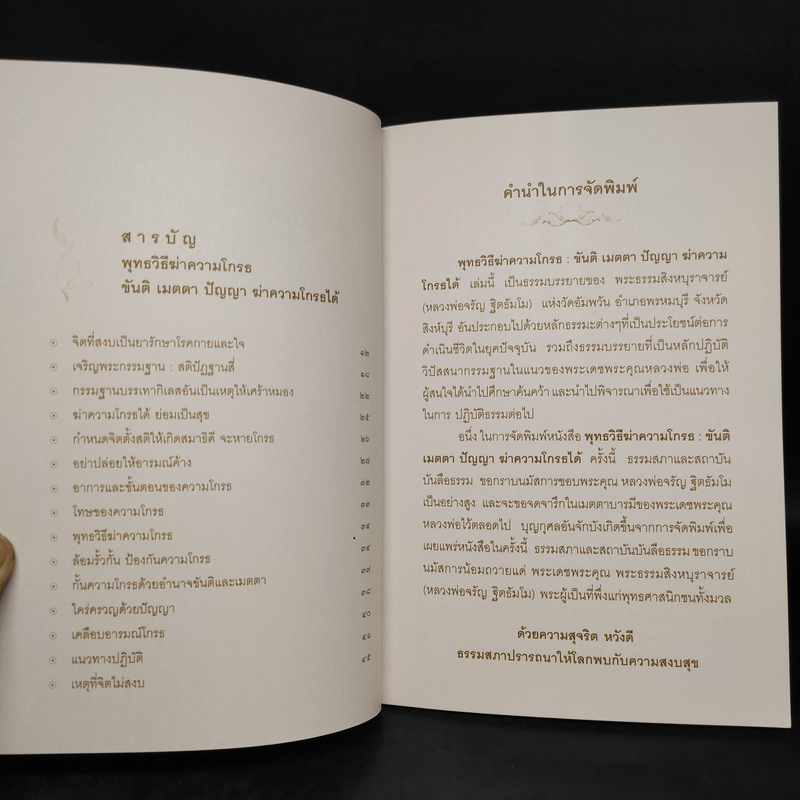 ส า ร บั ญ
พุทธวิธีฆ่าความโกรธ
ขันติ เมตตา ปัญญา ฆ่าความโกรธได้
จิตที่สงบเป็นยารักษาโรคกายและใจ ๑๒
เจริญพระกรรมฐาน : สติปัฏฐานสี่ ๑๘
กรรมฐานบรรเทากิเลสอันเป็นเหตุให้เศร้าหมอง ๒๒
ฆ่าความโกรธได้ ย่อมเป็นสุข ๒๕
กำหนดจิตตั้งสติให้เกิดสมาธิดี จะหายโกรธ ๒๖
อย่าปล่อยให้อารมณ์ค้าง ๒๘
อาการและขั้นตอนของความโกรธ ๓๒
โทษของความโกรธ ๓๓
พุทธวิธีฆ่าความโกรธ ๓๔
ล้อมรั้วกั้น ป้องกันความโกรธ ๓๕
กั้นความโกรธด้วยอำนาจขันติและเมตตา ๓๗
ใคร่ครวญด้วยปัญญา ๓๘
เคลือบอารมณ์โกรธ ๔๐
แนวทางปฏิบัติ ๔๑
เหตุที่จิตไม่สงบ ๔๕
คำนำในการจัดพิมพ์
พุทธวิธีฆ่าความโกรธ : ขันติ เมตตา ปัญญา ฆ่าความ
โกรธได้ เล่มนี้ เป็นธรรมบรรยายของ พระธรรมสิงหบุราจารย์
(หลวงพ่อจรัญ ฐิตธัมโม) แห่งวัดอัมพวัน อำเภอพรหมบุรี จังหวัด
สิงห์บุรี อันประกอบไปด้วยหลักธรรมะต่างๆที่เป็นประโยชน์ต่อการ
ดำเนินชีวิตในยุคปัจจุบัน รวมถึงธรรมบรรยายที่เป็นหลักปฏิบัติ
วิปัสสนากรรมฐานในแนวของพระเดชพระคุณหลวงพ่อ เพื่อให้
ผู้สนใจได้นำไปศึกษาค้นคว้า และนำไปพิจารณาเพื่อใช้เป็นแนวทาง
ในการ ปฏิบัติธรรมต่อไป
อนึ่ง ในการจัดพิมพ์หนังสือ พุทธวิธีฆ่าความโกรธ : ขันติ
เมตตา ปัญญา ฆ่าความโกรธได้ ครั้งนี้ ธรรมสภาและสถาบัน
บันลือธรรม ขอกราบนมัสการขอบพระคุณ หลวงพ่อจรัญ ฐิตธัมโม
เป็นอย่างสูง และจะขอจดจารึกในเมตตาบารมีของพระเดชพระคุณ
หลวงพ่อไว้ตลอดไป บุญกุศลอันจักบังเกิดขึ้นจากการจัดพิมพ์เพื่อ
เผยแพร่หนังสือในครั้งนี้ ธรรมสภาและสถาบันบันลือธรรม ขอกราบ
นมัสการน้อมถวายแด่ พระเดชพระคุณ พระธรรมสิงหบุราจารย์
(หลวงพ่อจรัญ ฐิตธัมโม) พระผู้เป็นที่พึ่งแก่พุทธศาสนิกชนทั้งมวล
ด้วยความสุจริต หวังดี
ธรรมสภาปรารถนาให้โลกพบกับความสงบสุข